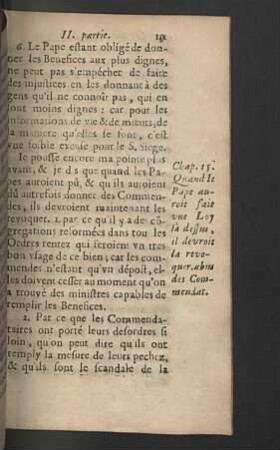 II. partie. 151
6. Le Pape estant obligé de don-
ner les Benefices aux plus dignes,
ne peut pas s'empécher de faire
des injustices en les donnant à des
gens qu'il ne connoit pas, qui en
sont moins dignes: car pour les
informations de vie & de mœurs, de
la maniere qu'elles se font, c'est
vne foible excuse pour le S. Siege.
Ie pousse encore ma pointe plus
avant, & je dis que quand les Pa-
pes auroient pû, & qu'ils auroient
dû autrefois donner des Commen-
des, ils devroient maintenant les
revoquer. 1. parce qu'il y a de cõ-
gregations reformées dans tous les
Ordres rentez qui feroient vn tres
bon vsage de ce bien; car les com-
mendes n'estant qu'vn dépost, el-
les doivent cesser au moment qu'on
a trouvé des ministres capables de
remplir les Benefices.
2. Par ce que les Commenda-
taires ont porté leurs desordres si
loin, qu'on peut dire qu'ils ont
remply la mesure de leurs pechez,
& qu'ils sont le scandale de la
Chap. 15.
Quand le
Pape au-
roit fait
vne Loy
là dessus,
il devroit
la revo-
quer. abus
des Com-
mendat.